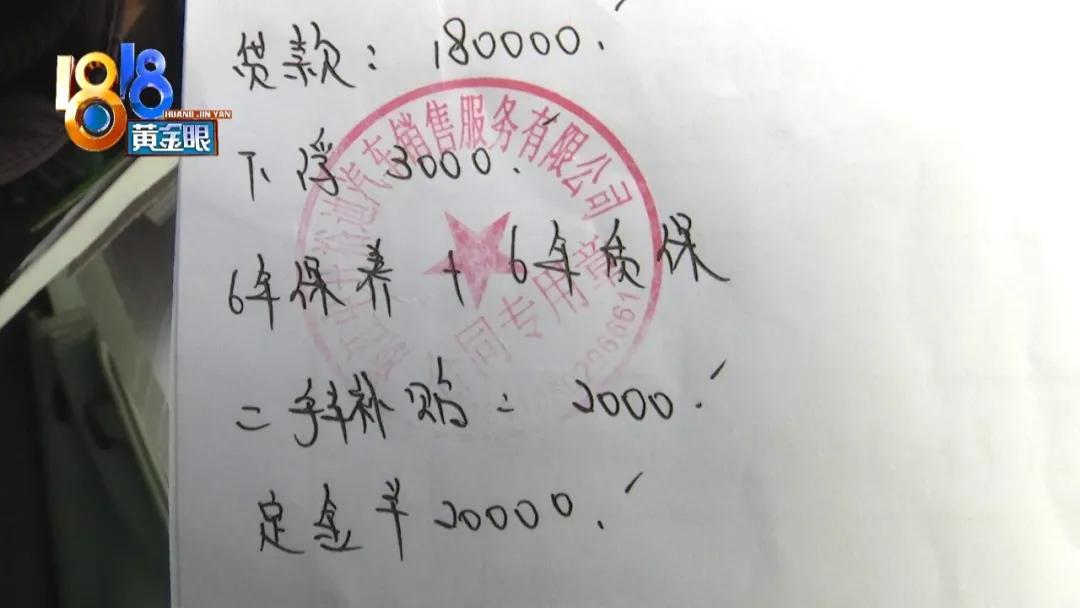 1818
HUANG JIN YAN
黄金眼
贷款: 180000.
下浮 3000.
6年保养 + 6年质保
二手车补贴: 2000.
定金¥20000.
迪汽车销售服务有限公司
合同专用章